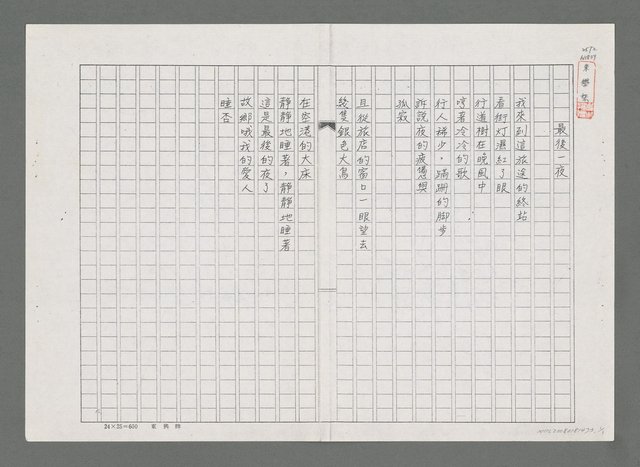 最後一夜
我來到這旅途的終站
看街灯濕紅了眼
行道樹在晚風中
哼著冷冷的歌
行人稀少，蹣跚的脚步
訴説夜的疲憊與
孤寂
且從旅店的窗口一眼望去
幾隻銀色大鳥
在空港的大床
靜靜地睡著，靜靜地睡著
這是最後的夜了
故鄉哦我的愛人
睡否
24×25=600